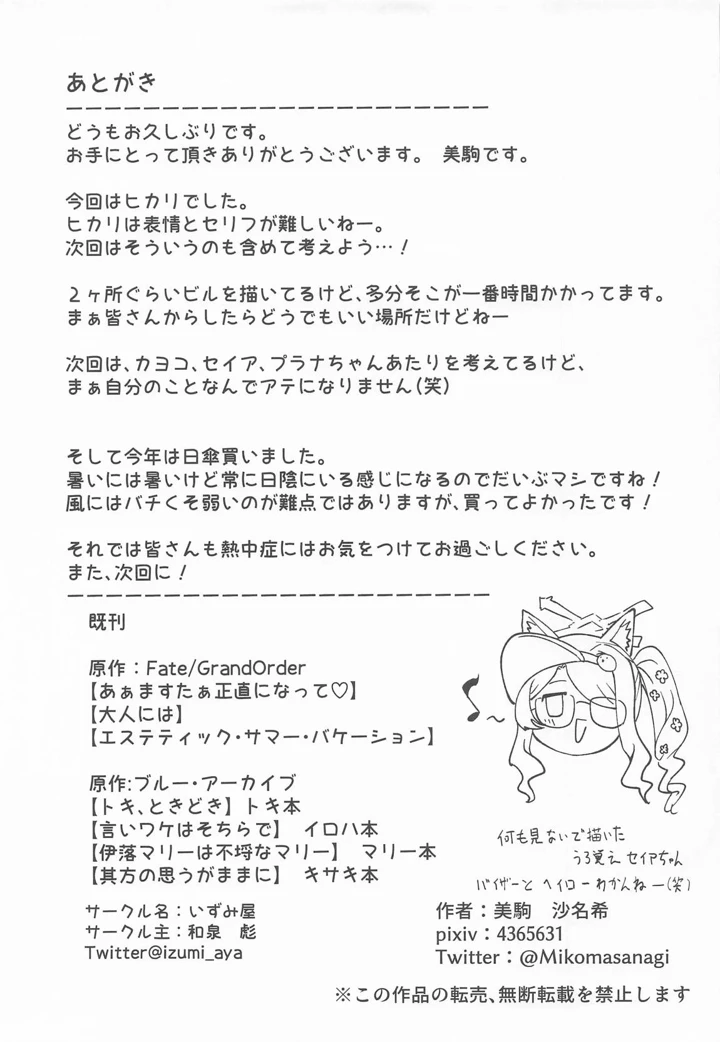 あとがき
どうもお久しぶりです。
お手にとって頂きありがとうございます。　美駒です。
今回はヒカリでした。
ヒカリは表情とセリフが難しいねー。
次回はそういうのも含めて考えよう…！
２ヶ所ぐらいビルを描いてるけど、多分そこが一番時間かかってます。
まぁ皆さんからしたらどうでもいい場所だけどねー
次回は、カヨコ、セイア、プラナちゃんあたりを考えてるけど、
まぁ自分のことなんでアテになりません（笑）
そして今年は日傘買いました。
暑いには暑いけど常に日陰にいる感じになるのでだいぶマシですね！
風にはバチくそ弱いのが難点ではありますが、買ってよかったです！
それでは皆さんも熱中症にはお気をつけてお過ごしください。
また、次回に！
既刊
原作：Fate/GrandOrder
【あぁますたぁ正直になって♡】
【大人には】
【エステティック・サマー・バケーション】
原作:ブルー・アーカイブ
【トキ、ときどき】トキ本
【言いワケはそちらで】　イロハ本
【伊落マリーは不埒なマリー】　マリー本
【其方の思うがままに】　キサキ本
何も見ないで描いた
うろ覚え セイアちゃん
バイザーと ヘイローわかんねー(笑)
サークル名：いずみ屋
サークル主：和泉　彪
Twitter@izumi_aya
作者：美駒　沙名希
pixiv：4365631
Twitter：@Mikomasanagi
※この作品の転売、無断転載を禁止します